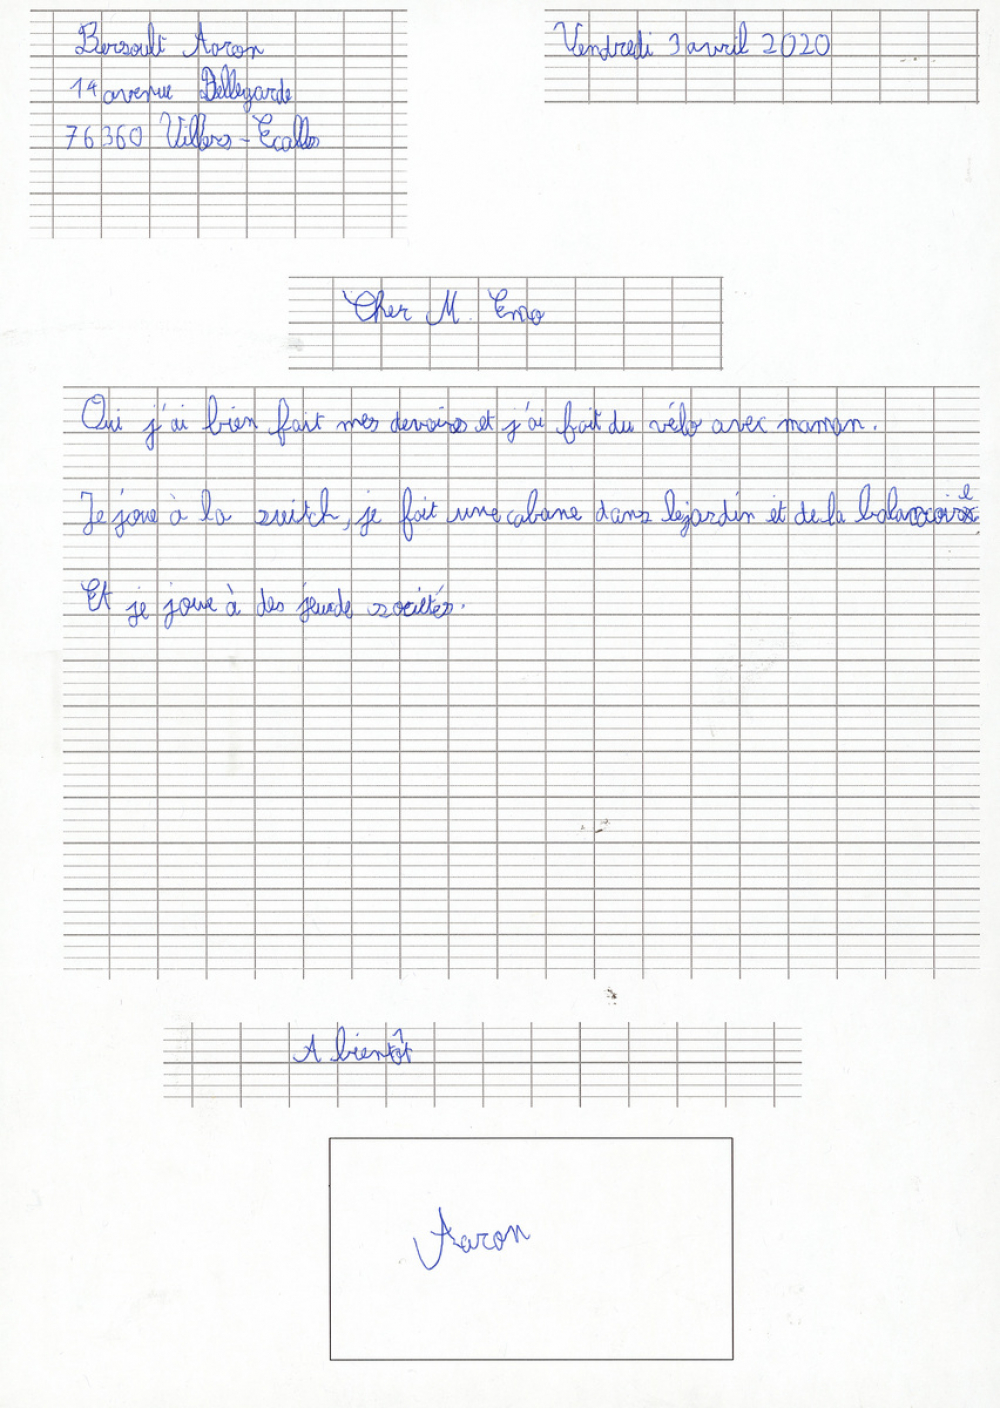 Bersoult Aaron
Vendredi 3 avril 2020
14 avenue Bellegarde
76360 Villers-Ecalles
Cher M. Emo
Oui j'ai bien fait mes devoirs et j'ai fait du vélo avec maman.
Je joue à la switch, je fait une cabane dans le jardin et de la
Et je joue à des jeu de sociétés.
A bientôt
Aaron